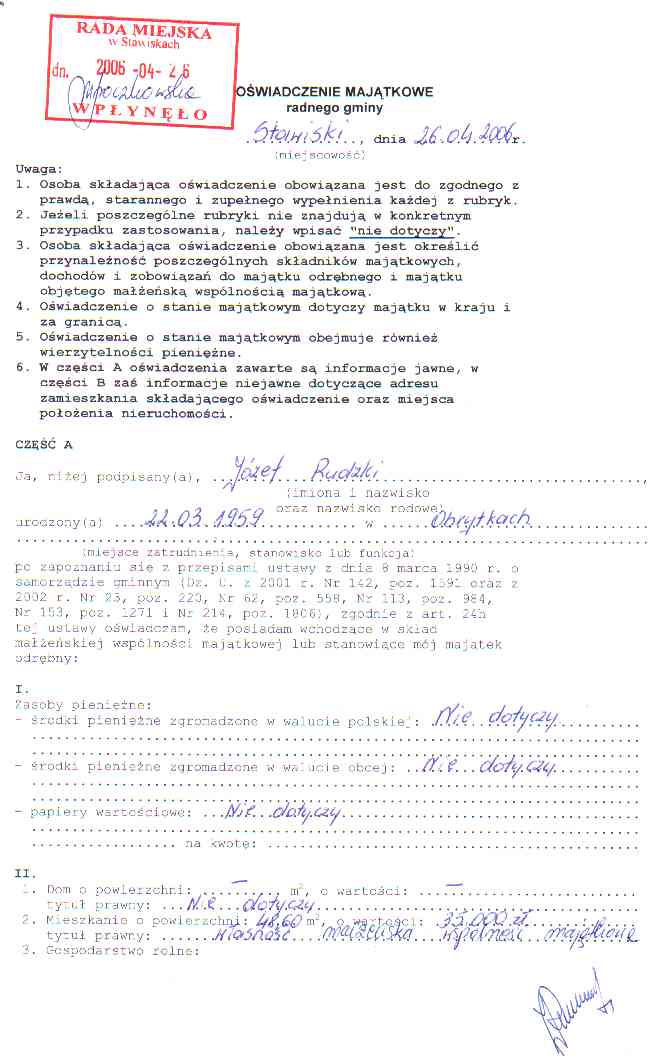 RADA MIEJSKA
w Stawiskach
dn. 2006 -04- 26
WPŁYNĘŁO
OŚWIADCZENIE MAJĄTKOWE
radnego gminy
Stawiski, dnia 26.04.2006r.
(miejscowość)
Uwaga:
1. Osoba składająca oświadczenie obowiązana jest do zgodnego z
prawdą, starannego i zupełnego wypełnienia każdej z rubryk.
2. Jeżeli poszczególne rubryki nie znajdują w konkretnym
przypadku zastosowania, należy wpisać "nie dotyczy".
3. Osoba składająca oświadczenie obowiązana jest określić
przynależność poszczególnych składników majątkowych,
dochodów i zobowiązań do majątku odrębnego i majątku
objętego małżeńską wspólnością majątkową.
4. Oświadczenie o stanie majątkowym dotyczy majątku w kraju i
za granicą.
5. Oświadczenie o stanie majątkowym obejmuje również
wierzytelności pieniężne.
6. W części A oświadczenia zawarte są informacje jawne, w
części B zaś informacje niejawne dotyczące adresu
zamieszkania składającego oświadczenie oraz miejsca
położenia nieruchomości.
CZĘŚĆ A
Ja, niżej podpisany(a), ...Józef....Rudzki...,
(imiona i nazwisko
oraz nazwisko rodowe)
urodzony(a) ....22.03.1959............ w ......Obrytkach............
(miejsce zatrudnienia, stanowisko lub funkcja)
po zapoznaniu się z przepisami ustawy z dnia 8 marca 1990 r. o
samorządzie gminnym (Dz. U. z 2001 r. Nr 142, poz. 1591 oraz z
2002 r. Nr 23, poz. 220, Nr 62, poz. 558, Nr 113, poz. 984,
Nr 153, poz. 1271 i Nr 214, poz. 1806), zgodnie z art. 24h
tej ustawy oświadczam, że posiadam wchodzące w skład
małżeńskiej wspólności majątkowej lub stanowiące mój majątek
odrębny:
I.
Zasoby pieniężne:
- środki pieniężne zgromadzone w walucie polskiej: .Nie..dotyczy..........
- środki pieniężne zgromadzone w walucie obcej: ..Nie...dotyczy..........
- papiery wartościowe: ...Nie...dotyczy..........
.................. na kwotę: ..........
II.
1. Dom o powierzchni: ....–.... m², o wartości: ...–..........
tytuł prawny: ...Nie...dotyczy..........
2. Mieszkanie o powierzchni: 48,60 m², o wartości: 35.000 zł..........
tytuł prawny: ......własność...małżeńska...wspólność...majątkowa
3. Gospodarstwo rolne: